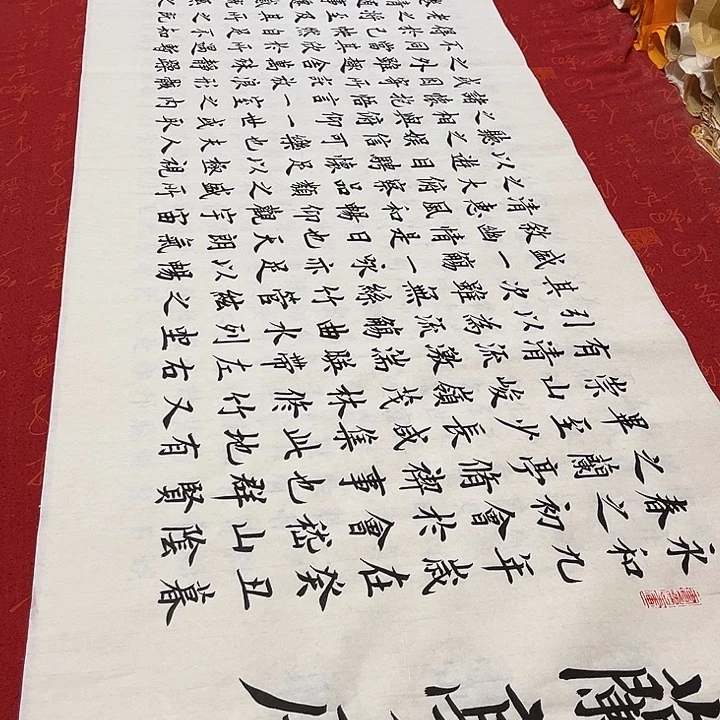 永和九年歲在癸丑暮
春之初會於會稽山陰
之蘭亭脩禊事也群賢
畢至少長咸集此地有
崇山峻嶺茂林脩竹又
有清流激湍映帶左右
引以為流觴曲水列坐
其次雖無絲竹管絃之
盛一觴一詠亦足以暢
敘幽情是日也天朗氣
清惠風和暢仰觀宇宙
之大俯察品類之盛所
以遊目騁懷足以極視
聽之娛信可樂也夫人
之相與俯仰一世或取
諸懷抱悟言一室之內
或因寄所託放浪形骸
之外雖趣舍萬殊靜躁
不同當其欣於所遇暫
得於己快然自足不知